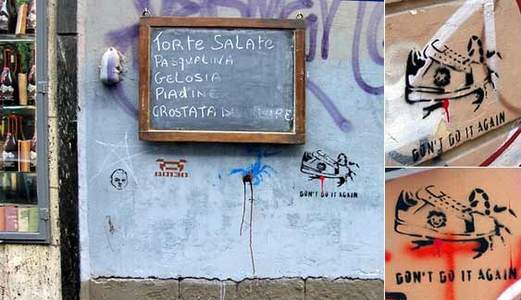 TORTE SALATE
PASQUALINA
GELOSIA
PIADINE
CROSTATA DI
DON'T DO IT AGAIN
DON'T DO IT AGAIN
DON'T DO IT AGAIN